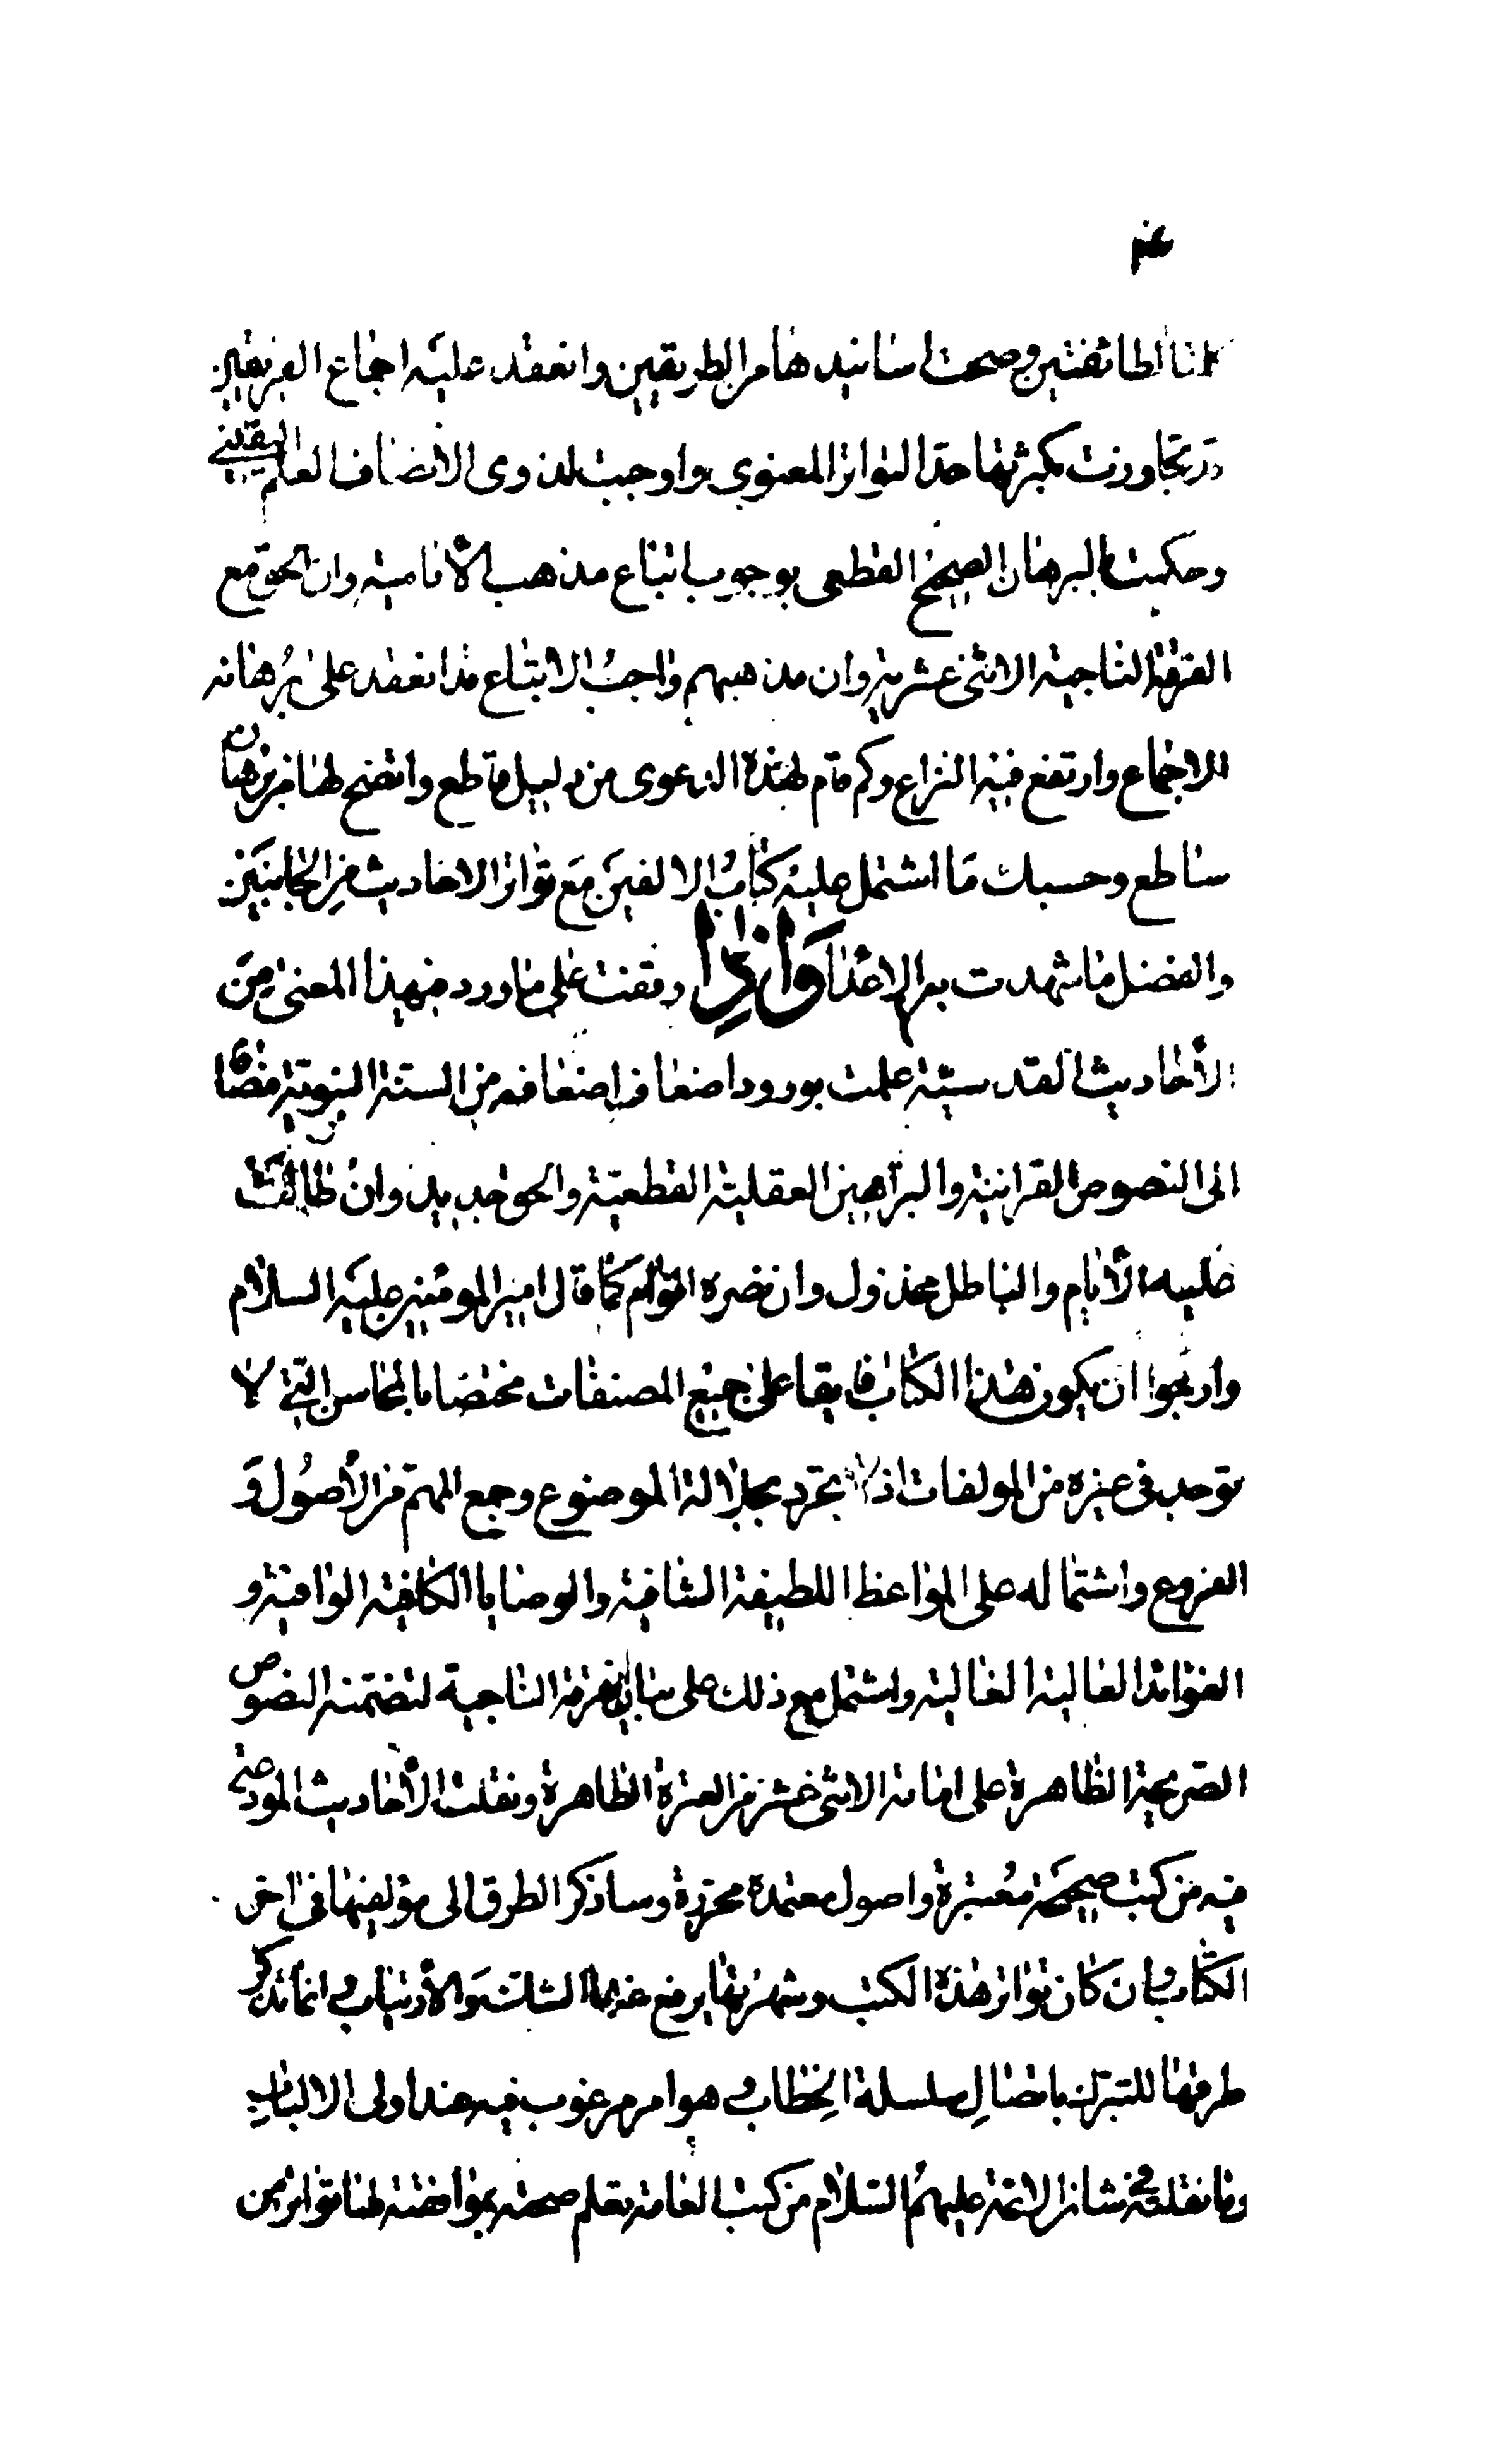 كلتا الطائفتين وصحت اسانيدها من الطريقين وانعقد عليه اجماع الفريقين
وتجاوزت بكثرتها حد التواتر المعنوي واوجبت لذوى الانصاف العلم اليقيني
وحكمت بالبرهان الصحيح القطعى بوجوب اتباع مذهب الأمامية وان الحق مع
الفرقة الناجية الاثنى عشرية وان مذهبهم واجبُ الاتباع قد انعقد على بُرهانه
الاجماع وارتفع فيه النزاع وكم قام لهذه الدعوى من دليل قاطع واتضح لها من برهان
ساطع وحسبك مَا اشتمل عليه كتابُ الالفين مَع تواتر الاحاديث مِن الجانبَين
والفضل ما شهدت به الاعدا وَاذِا وقفت على ما ورد في هذا المعنى مِنَ
الأحاديث القدسيّة علمت بورود اضعاف اضعافه من السنة النبوية مضافا
الى النصوص القرانية والبراهين العقلية القطعيّة والحق جديد وان طالت
عليه الأيام والباطل مخذول وان نصره اقوام كما قال امير المومنين عليه السلام
وارجوا ان يكون هذا الكتاب فايقا على جميع المصنفات مختصا بالمحاسن التي لا
توجد فى غيره من المولفات اذ تجرد بجلالة الموضوع وجمع المهمّ من الأصُول وَ
الفروع واشتماله على المواعظ اللطيفة الشافية والوصايا الكافية الوافية و
الفوائد العالية الغالية واشتمل مع ذلك على بيان الفرقة الناجية لتضمنه النصوص
الصريحة الظاهرة على امامة الاثنى عشر من العترة الطاهرة ونقلت الأحاديث المودعة
فيه من كتب صحيحَة مُعتبرة واصول معتمدة محررة وساذكر الطرق الى مؤلفيها فى اخر
الكتاب وان كان تواتر هذه الكتب وشهرتها يرفع عنها الشك وَالأرتياب وانما تذكر
طرقها للتبرك باتصالِ سلسلة الخِطاب وهو امر مرغوب فيه عند اولى الالباب
وما نقلته في شان الائمة عليهمُ السّلام من كتب العامة تعلم صحته بموافقته لما تواتر من